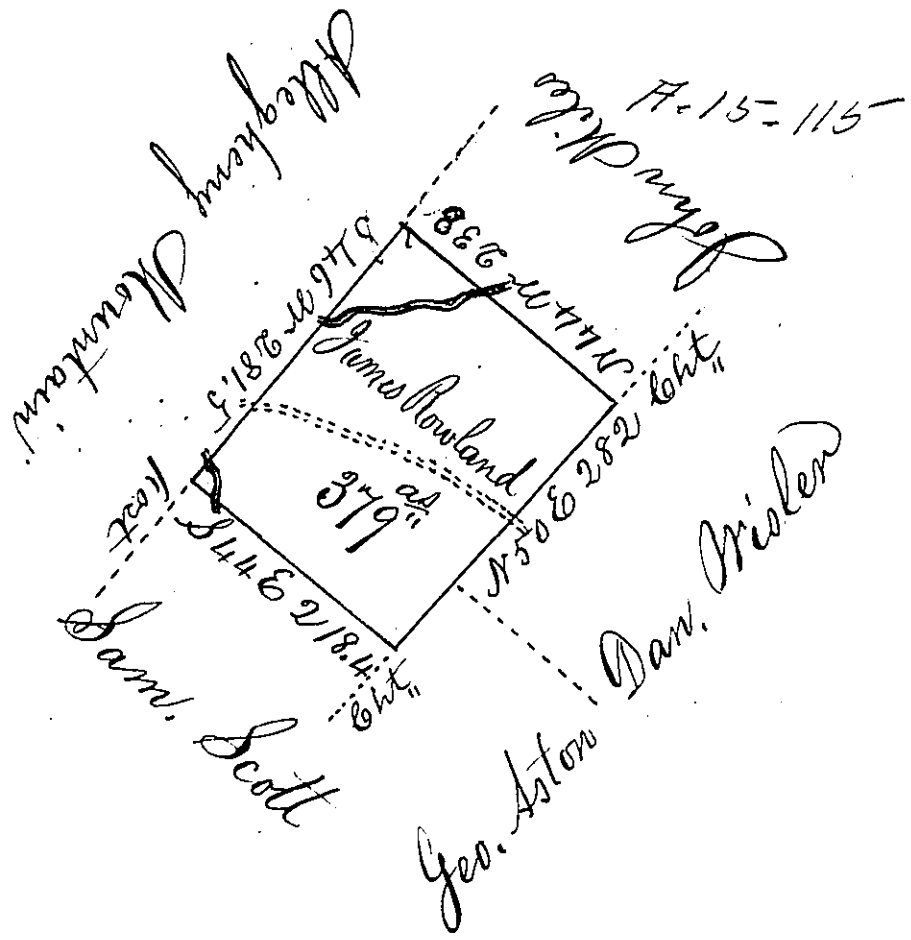 A-15-115
Allegheny
Mountain
John
S 46 W 281.5
N 44 W 238
James Rowland
379 as
N 50 E 282
Cht
Post
S 44 E 218.4
Cht
Sam. Scott
Geo. Aston
Dan. Wisler